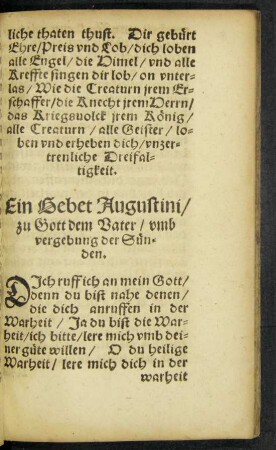 liche thaten thust. Dir gebürt
Ehre/Preis vnd Lob/dich loben
alle Engel/die Himel/vnd alle
Kreffte singen dir lob/on vnter-
las/Wie die Creaturn jrem Er-
schaffer/die Knecht jrem Herrn/
das Kriegsuolck jrem König/
alle Creaturn/alle Geister/lo-
ben vnd erheben dich/vnzer-
trenliche Dreifal-
tigkeit.
Ein Gebet Augustini/
zu Gott dem Vater/vmb
vergebung der Sün-
den.
DIch ruff ich an mein Gott/
denn du bist nahe denen/
die dich anruffen in der
Warheit/Ja du bist die War-
heit/ich bitte/lere mich vmb dei-
ner güte willen/O du heilige
Warheit/lere mich dich in der
warheit